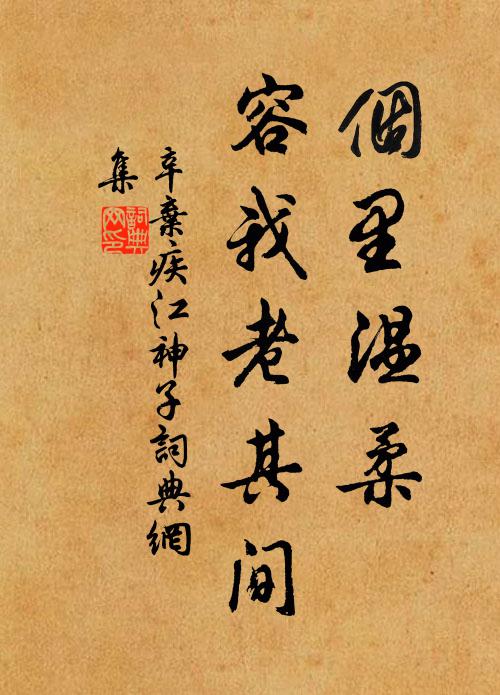 個里温柔
容我老其间
辛棄疾江神子詞典網
集
詞典
网印